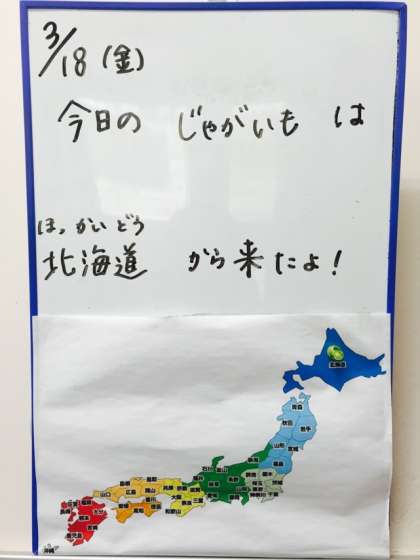 3/18 (金)
今日の じゃがいも は
ほっかいどう
北海道 から来たよ!
北海道
青森
秋田 岩手
山形 宮城
福島
新潟
石川 富山
群馬 栃木
長野
埼玉 茨城
東京
神奈川 千葉
山梨
静岡
愛知
岐阜
福井
滋賀
京都
三重
奈良
大阪
和歌山
兵庫
鳥取
島根
岡山
広島
山口
香川
徳島
愛媛
高知
福岡
佐賀
長崎
大分
熊本
宮崎
鹿児島
沖縄